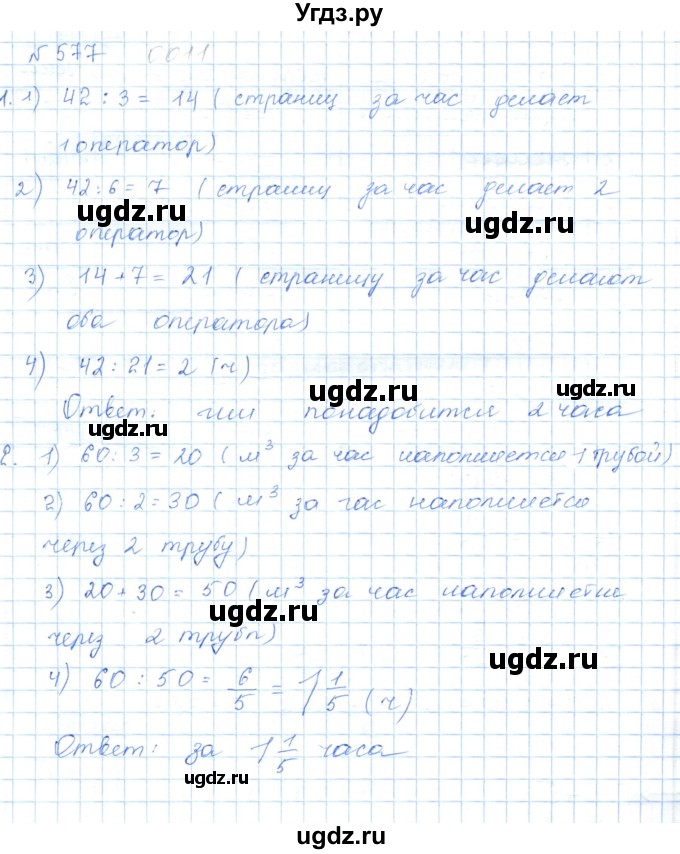 Угдз.ру
№577
1. 1) 42 : 3 = 14 ( страниц за час делает
1 оператор)
2) 42:6 = 7 (страниц за час делает 2
ugdz.ru ugdz.ru
оператор)
3) 14+7 = 21 ( страницу за час делают
оба оператора)
4) 42:21 = 2 (ч)
ugdz.ru
Ответ: им понадобится 2 часа
ugdz.ru
2. 1) 60:3 = 20 ( м³ за час наполняется 1 трубой)
2) 60:2=30 ( м³ за час наполняется
через 2 трубу)
3) 20+30 = 50 ( м³ за час наполнетис
ugdz.ru
через 2 трубы)
ugdz.ru
4) 60 : 50 = 6/5 = 1 1/5 (ч)
Ответ: за 1 1/5 часа
ugdz.ru
ugdz.ru